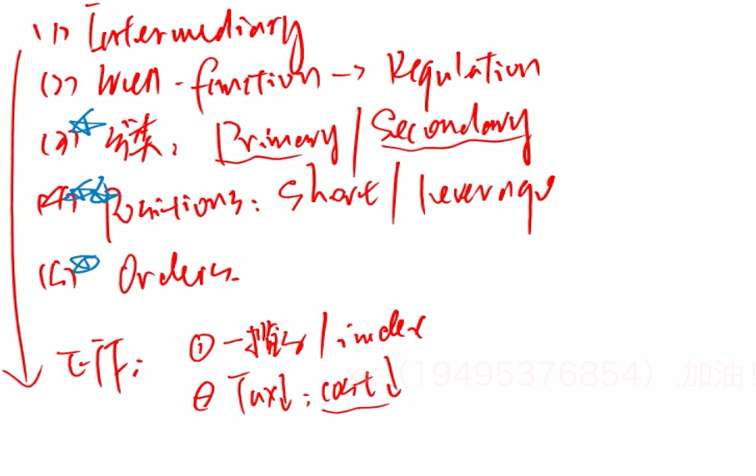 (1) Intermediary
(2) Well-function → Regulation
(3) 分类: Primary / Secondary
(4) Positions: Short / leverage
(5) Orders.
ETF: ① 一揽子 / index
② Tax↓ : cost↓
(19495376854) 加油!